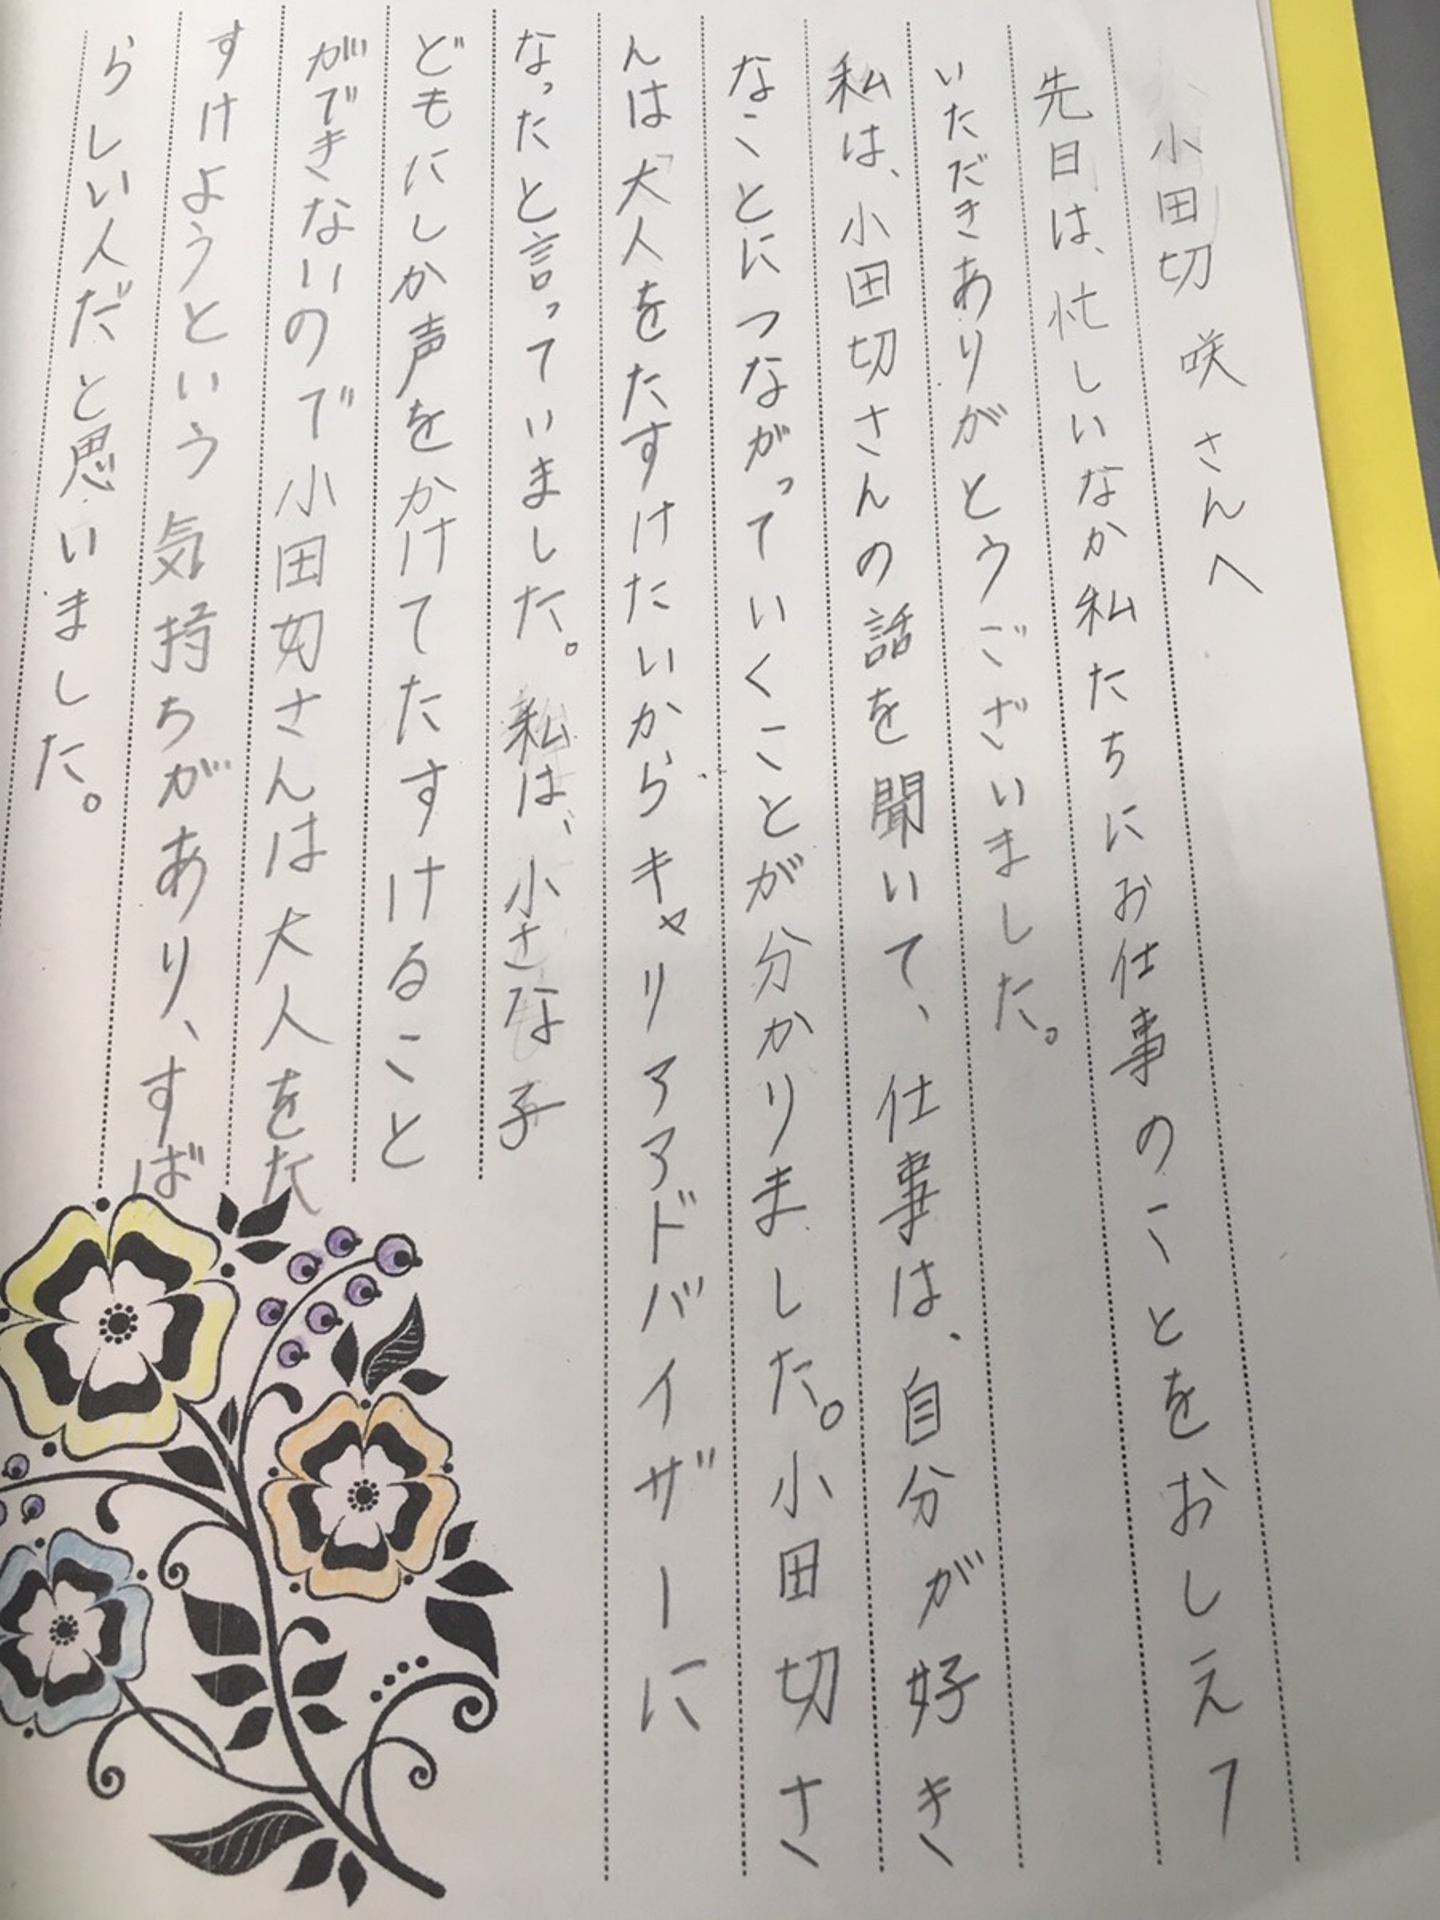 小田切 咲さんへ
先日は、忙しいなか私たちにお仕事のことをおしえて
いただきありがとうございました。
私は、小田切さんの話を聞いて、仕事は、自分が好き
なことにつながっていくことが分かりました。小田切さ
んは「大人をたすけたいからキャリアアドバイザーに
なったと言っていました。私は、小さな子
どもにしか声をかけてたすけること
ができないので小田切さんは大人をた
すけようという気持ちがあり、すば
らしい人だと思いました。